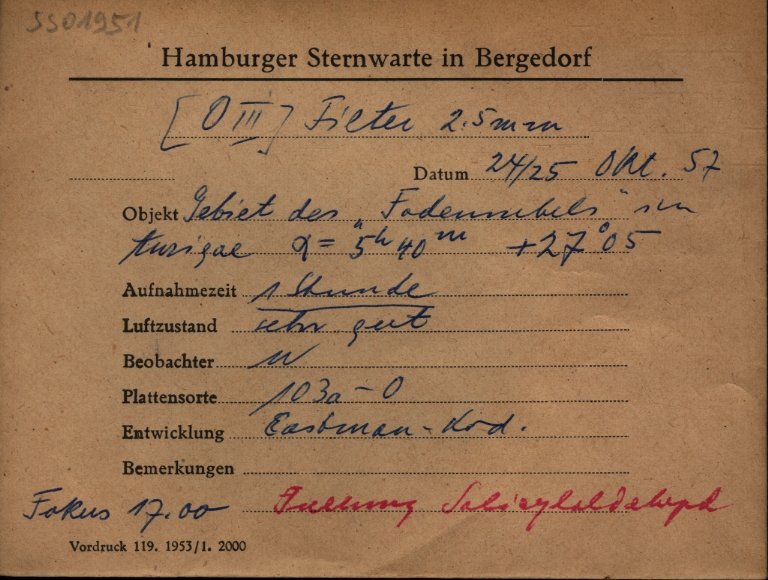 SSO1951
Hamburger Sternwarte in Bergedorf
[O III] Filter 2.5mm
Datum 24/25 Okt. 57
Objekt Gebiet des "Fadennebels" im
Aurigae α = 5h 40m +27°05
Aufnahmezeit 1 Stunde
Luftzustand sehr gut
Beobachter W
Plattensorte 103a-O
Entwicklung Eastman-Kod.
Bemerkungen
Fokus 17.00 Füllung Salicylaldehyd
Vordruck 119. 1953/1. 2000